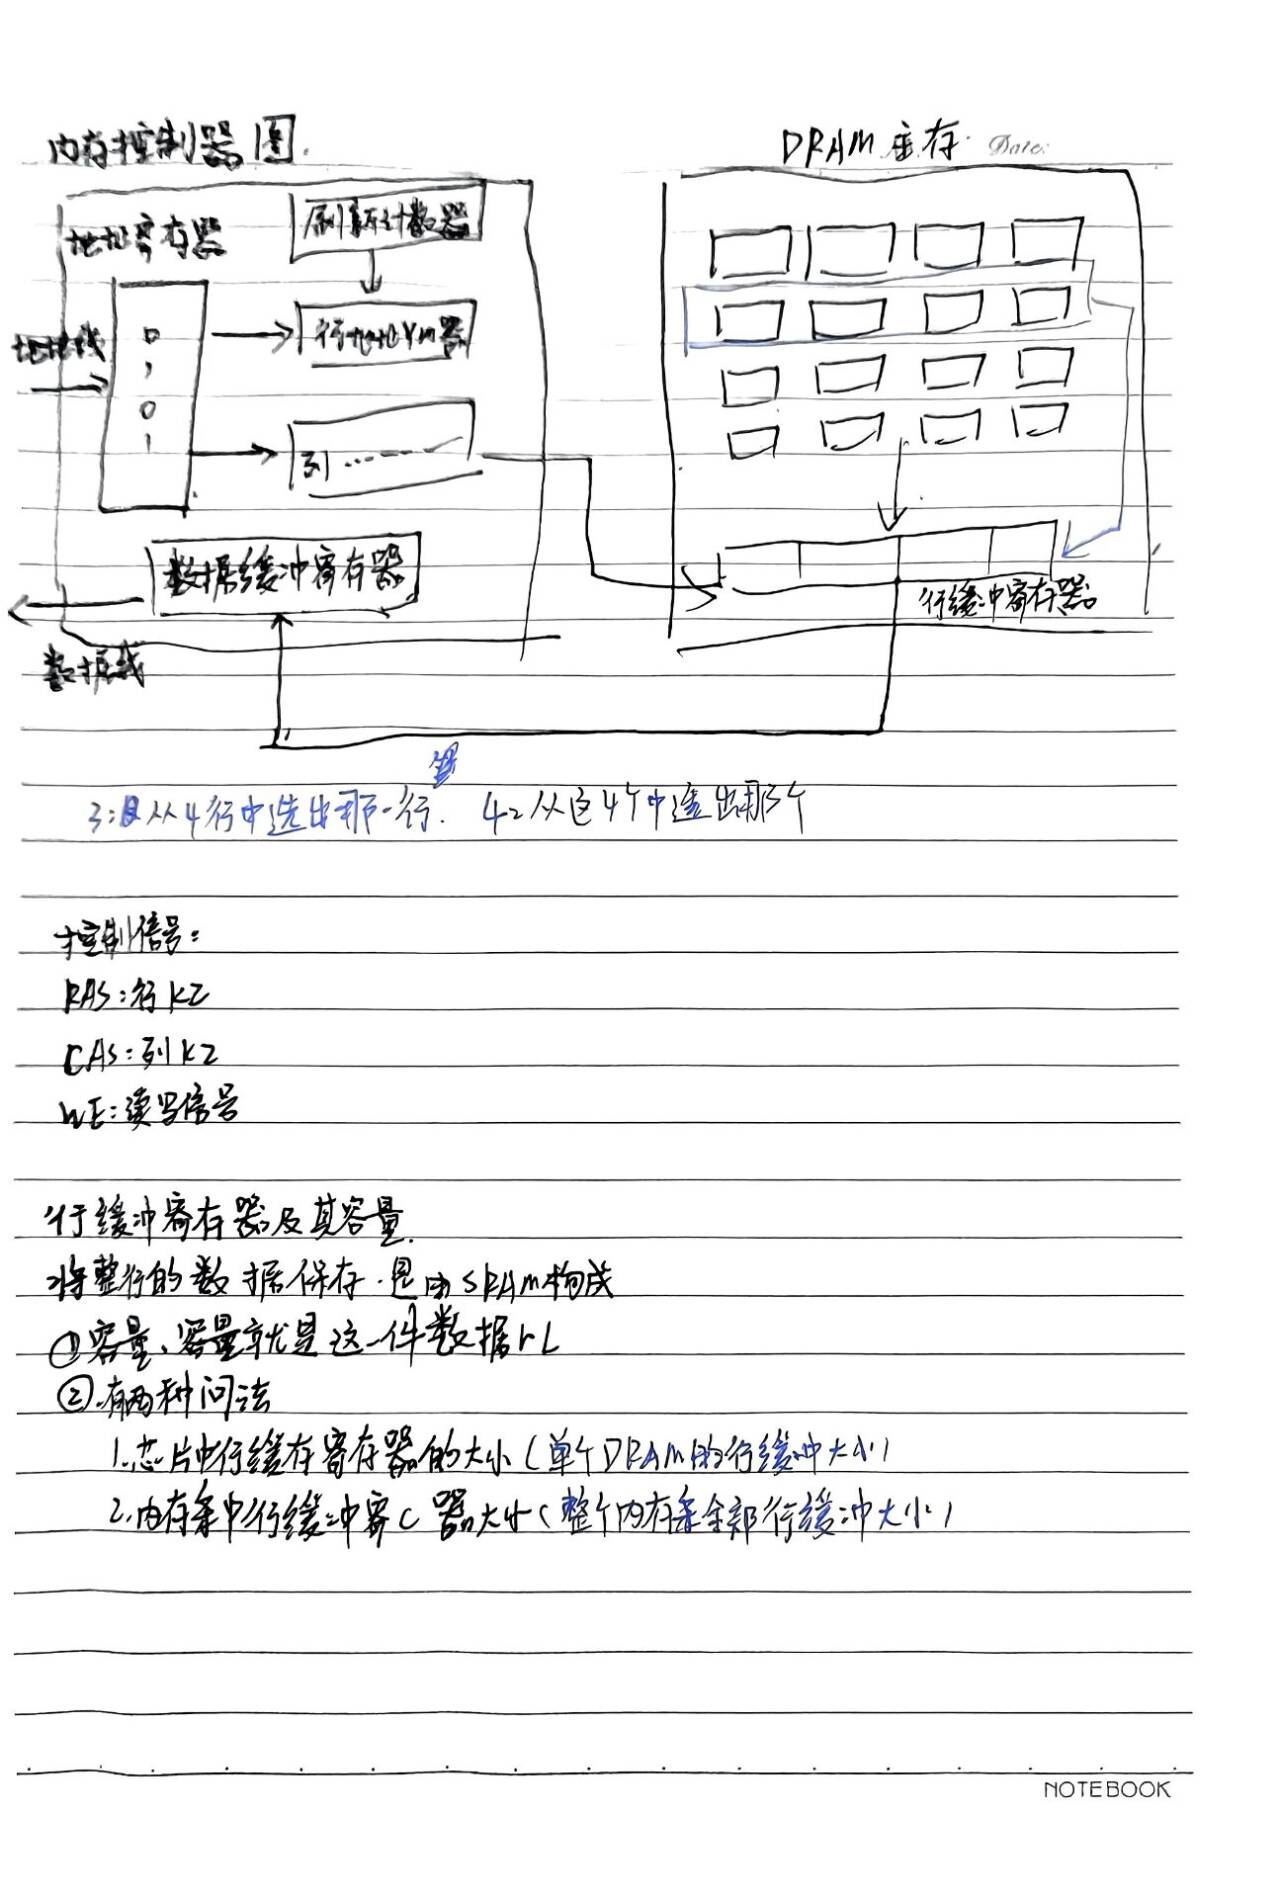 内存控制器图.
DRAM
Date:
地址寄存器
刷新计数器
行地址
地址线
0
1
0
1
列……
数据缓冲寄存器
行缓冲寄存器
数据线
3: 从4行中选出那一行. 4: 从这4个中选出那个
控制信号:
RAS:行KZ
CAS:列KZ
WE:读写信号
行缓冲寄存器及其容量.
将整行的数据保存.是由SRAM构成
①容量、容量就是这一件数据rL
②.有两种问法
1.芯片中行缓存寄存器的大小(单个DRAM的行缓冲大小)
2.内存条中行缓冲寄C器大小(整个内存条全部行缓冲大小)
NOTEBOOK